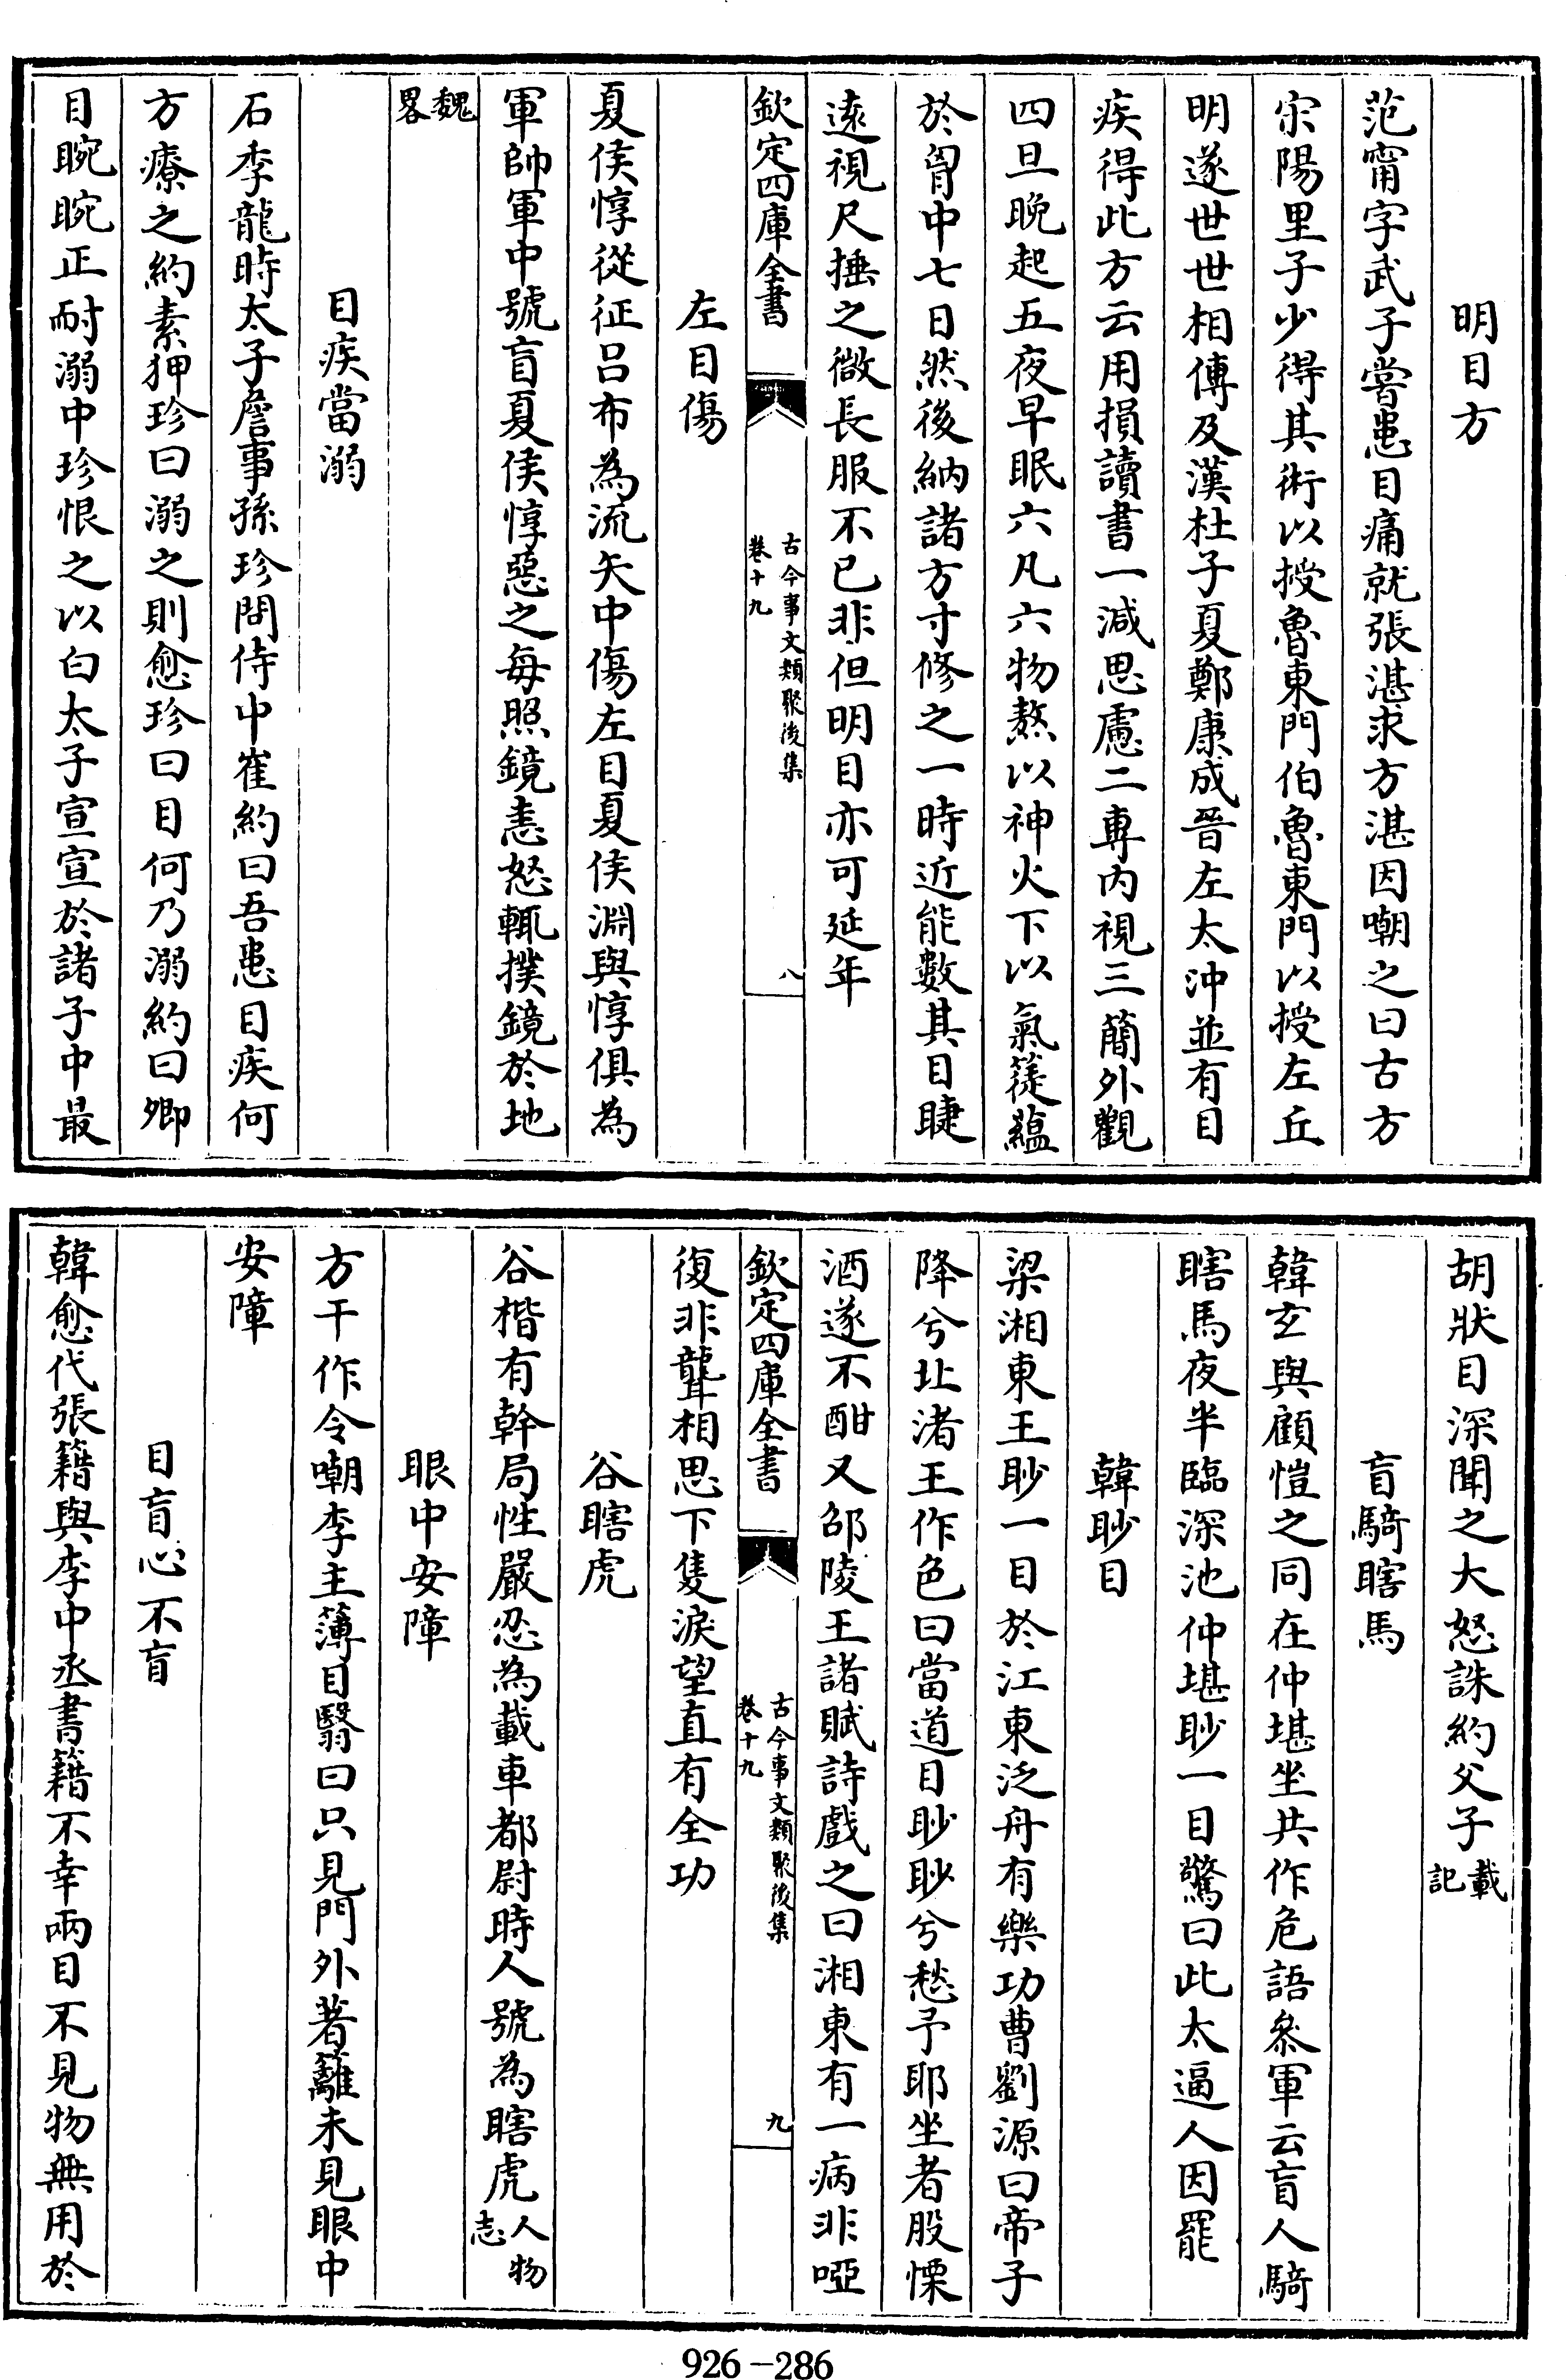 明目方
范甯字武子嘗患目痛就張湛求方湛因嘲之曰古方
宋陽里子少得其術以授魯東門伯魯東門以授左丘
明遂世世相傳及漢杜子夏鄭康成晉左太沖並有目
疾得此方云用損讀書一減思慮二專內視三簡外觀
四旦晚起五夜早眠六凡六物熬以神火下以氣簁蘊
於胷中七日然後納諸方寸修之一時近能數其目睫
逺視尺捶之㣲長服不已非但明目亦可延年
欽定四庫全書
古今事文類聚後集
卷十九
八
左目傷
夏侯惇從征呂布為流矢中傷左目夏侯淵與惇俱為
軍帥軍中號盲夏侯惇惡之每照鏡恚怒輒撲鏡於地
魏畧
目疾當溺
石季龍時太子詹事孫珍問侍中崔約曰吾患目疾何
方療之約素狎珍曰溺之則愈珍曰目何乃溺約曰卿
目睕睕正耐溺中珍恨之以白太子宣宣於諸子中最
胡狀目深聞之大怒誅約父子載記
盲騎瞎馬
韓玄與顧愷之同在仲堪坐共作危語叅軍云盲人騎
瞎馬夜半臨深池仲堪眇一目驚曰此太逼人因罷
韓眇目
梁湘東王眇一目於江東泛舟有樂功曹劉源曰帝子
降兮北渚王作色曰當道目眇眇兮愁予耶坐者股慄
酒遂不酣又邵陵王諸賦詩戲之曰湘東有一病非啞
欽定四庫全書
古今事文類聚後集
卷十九
九
復非聾相思下隻淚望直有全功
谷瞎虎
谷楷有幹局性嚴忍為載車都尉時人號為瞎虎人物志
眼中安障
方干作令嘲李主薄目翳曰只見門外著籬未見眼中
安障
目盲心不盲
韓愈代張籍與李中丞書籍不幸兩目不見物無用於
926-286